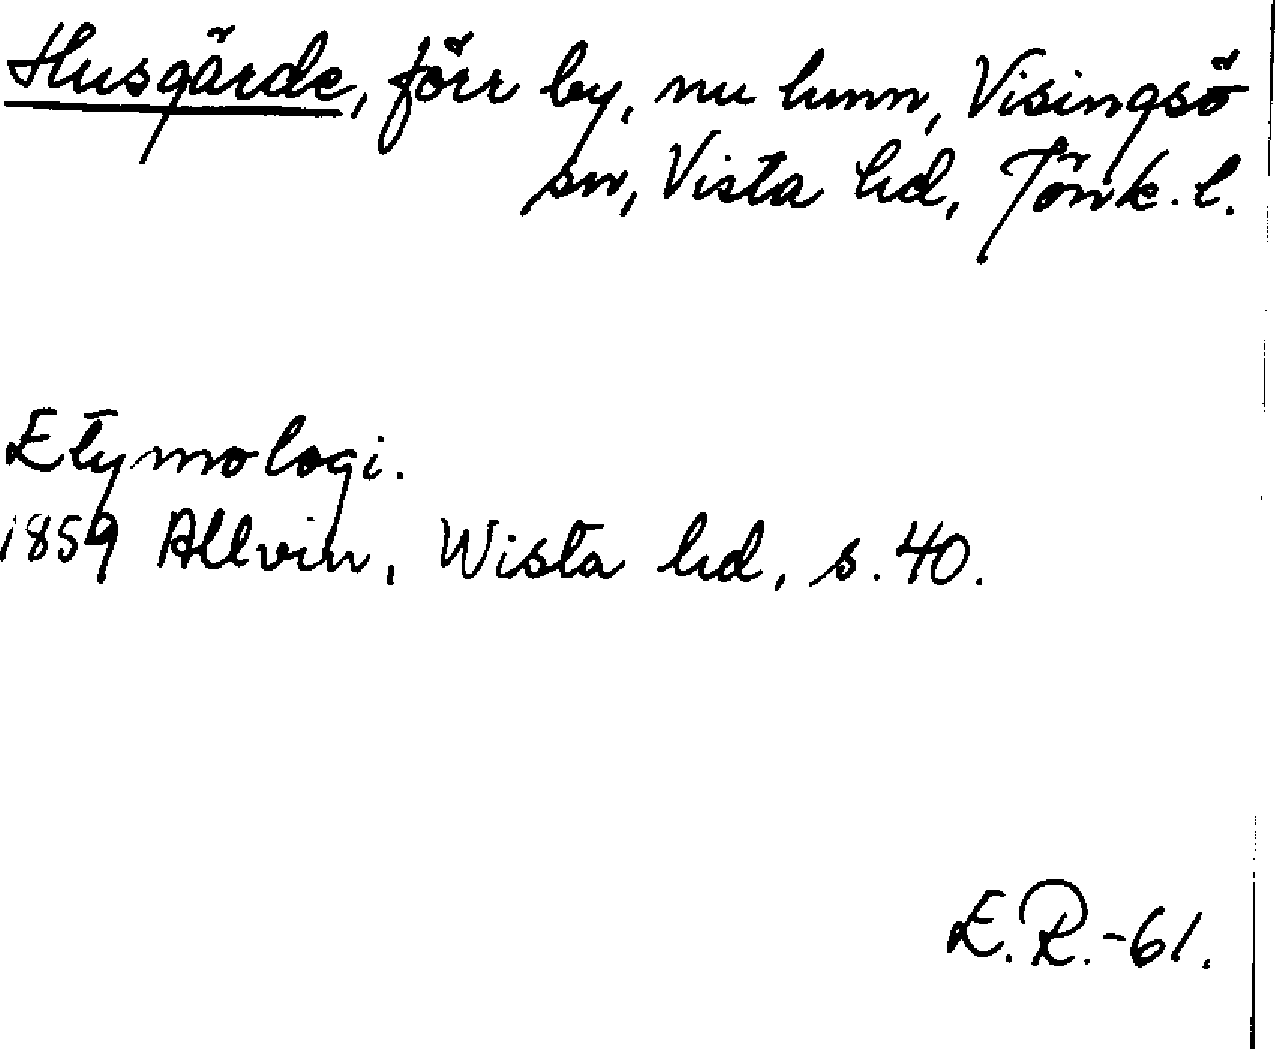 Husgärde, förr by, nu hmn, Visingsö
sn, Vista hd, Jönk. l.
Etymologi.
1859 Allvin, Wista hd, s. 40.
E.R.-61.